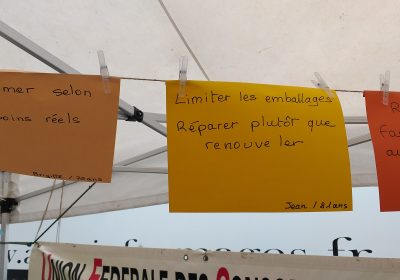 mer selon
oins réels
Brigitte / 70 ans
Limiter les emballages
Réparer plutôt que
renouveler
Jean / 81 ans
R
Fa
au
UNION FEDERALE DES CONSO